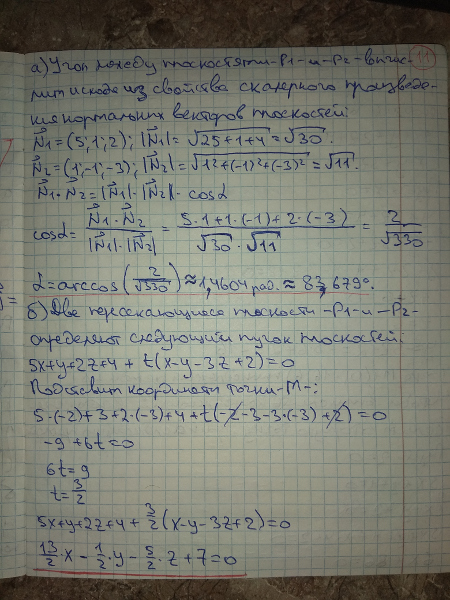 11
а) Угол между плоскостями -P1- и -P2- вычис-
лит исходя из свойства скалярного произведе-
ния нормальных векторов плоскостей:
N⃗1 = (5; 1; 2); |N⃗1| = √25+1+4 = √30.
N⃗2 = (1; -1; -3); |N⃗2| = √1²+(-1)²+(-3)² = √11.
N⃗1 · N⃗2 = |N⃗1| · |N⃗2| · cosα
cosα = N⃗1 · N⃗2 / |N⃗1| · |N⃗2| = 5·1+1·(-1)+2·(-3) / √30 · √11 = 2 / √330
α = arccos(2/√330) ≈ 1,4604 рад. ≈ 83,679°.
б) Две пересекающиеся плоскости -P1- и -P2-
определяют следующий пучок плоскостей:
5x+y+2z+4 + t(x-y-3z+2) = 0
Подставит координаты точки -M-:
5·(-2)+3+2·(-3)+4+t(-2-3-3·(-3)+2) = 0
-9+6t=0
6t=9
t = 3/2
5x+y+2z+4 + 3/2(x-y-3z+2) = 0
13/2·x - 1/2·y - 5/2·z + 7 = 0